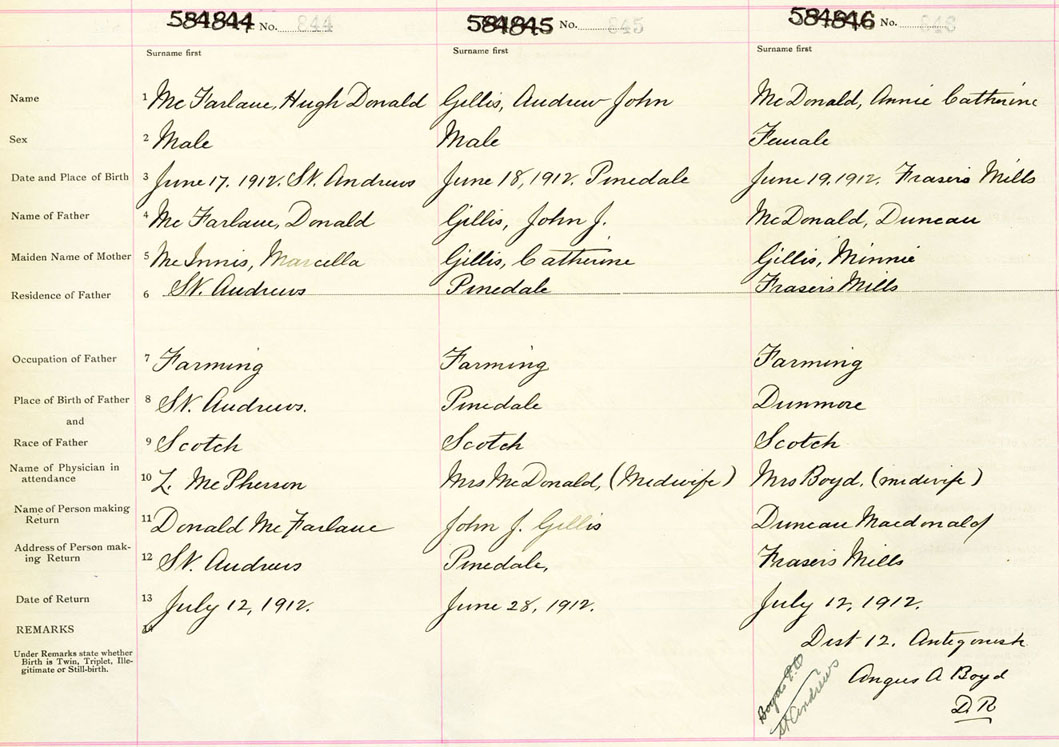 584844 No. 844 584845 No. 845 584846 No. 846
Surname first Surname first Surname first
Name 1 McFarlane, Hugh Donald Gillis, Andrew John McDonald, Annie Catherine
Sex 2 Male Male Female
Date and Place of Birth 3 June 17. 1912. St. Andrews June 18, 1912. Pinedale June 19, 1912. Frasers Mills
Name of Father 4 McFarlane, Donald Gillis, John J. McDonald, Duncan
Maiden Name of Mother 5 McInnis, Marcella Gillis, Catherine Gillis, Minnie
Residence of Father 6 St. Andrews Pinedale Frasers Mills
Occupation of Father 7 Farming Farming Farming
Place of Birth of Father 8 St. Andrews. Pinedale Dunmore
and
Race of Father 9 Scotch Scotch Scotch
Name of Physician in
attendance 10 McPherson Mrs McDonald, (Midwife) Mrs Boyd, (midwife)
Name of Person making
Return 11 Donald McFarlane John J. Gillis Duncan Macdonald
Address of Person mak-
ing Return 12 St. Andrews Pinedale, Frasers Mills
Date of Return 13 July 12, 1912. June 28, 1912. July 12, 1912.
REMARKS 14 Dist 12. Antigonish
Under Remarks state whether
Birth is Twin, Triplet, Ille-
gitimate or Still-birth.
Angus A Boyd
D R
Boyds P.O
St Andrews